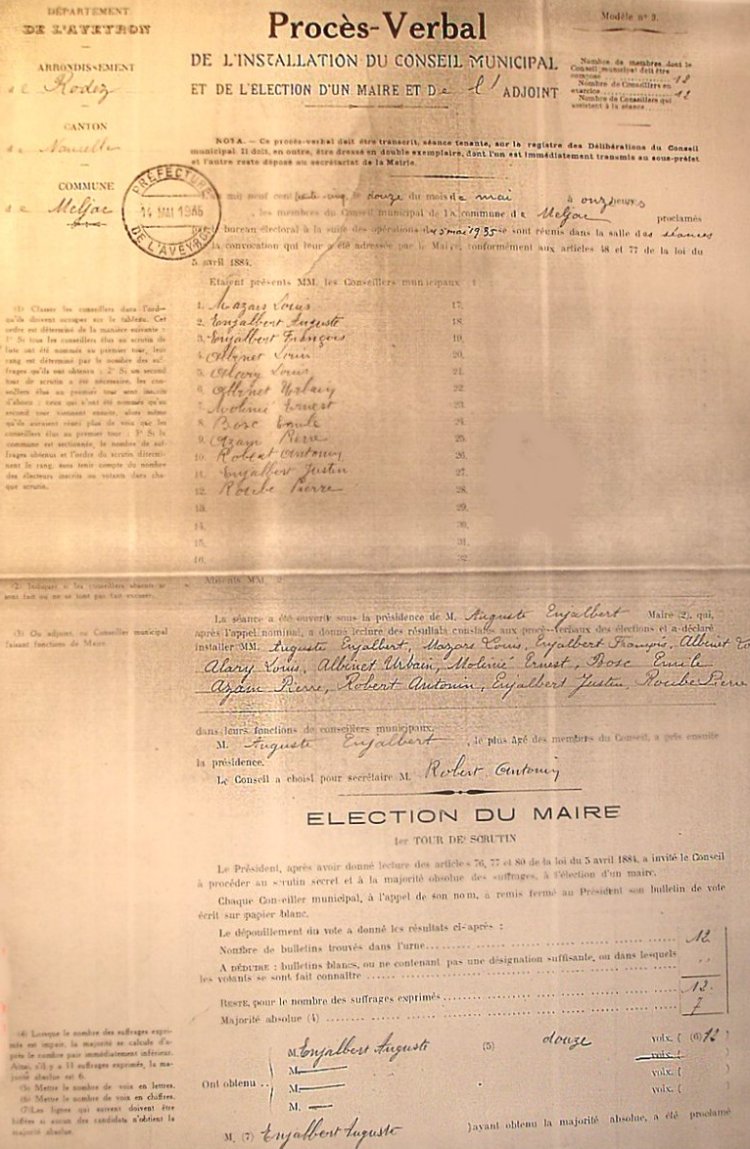 DÉPARTEMENT
DE L'AVEYRON
ARRONDISSEMENT
de Rodez
CANTON
de Naucelle
COMMUNE
de Meljac
PRÉFECTURE
14 MAI 1935
DE L'AVEYRON
Modèle n° 3.
Procès-Verbal
DE L'INSTALLATION DU CONSEIL MUNICIPAL
ET DE L'ELECTION D'UN MAIRE ET De l' ADJOINT
Nombre de membres dont le
Conseil municipal doit être
composé 12
Nombre de Conseillers en
exercice 12
Nombre de Conseillers qui
assistent à la séance
NOTA. — Ce procès-verbal doit être transcrit, séance tenante, sur le registre des Délibérations du Conseil
municipal. Il doit, en outre, être dressé en double exemplaire, dont l'un est immédiatement transmis au sous-préfet
et l'autre reste déposé au secrétariat de la Mairie.
mil neuf cent trente cinq, le douze du mois de mai à onze heures
, les membres du Conseil municipal de la commune de Meljac proclamés
bureau électoral à la suite des opérations du 5 mai 1935 se sont réunis dans la salle des séances
la convocation qui leur a été adressée par le Maire, conformément aux articles 48 et 77 de la loi du
5 avril 1884.
Etaient présents MM. les Conseillers municipaux :
1. Mazars Louis 17.
2. Enjalbert Auguste 18.
3. Enjalbert François 19.
4. Albinet Louis 20.
5. Alary Louis 21.
6. Albinet Urbain 22.
7. Molinié Ernest 23.
8. Bosc Emile 24.
9. Azam Pierre 25.
10. Robert Antonin 26.
11. Enjalbert Justin 27.
12. Roube Pierre 28.
13. 29.
14. 30.
15. 31.
16. 32
(1) Classer les conseillers dans l'ord-
qu'ils doivent occuper sur le tableau. Cet
ordre est déterminé de la manière suivante :
1° Si tous les conseillers élus au scrutin de
liste ont été nommés au premier tour, leur
rang est déterminé par le nombre des suf-
frages qu'ils ont obtenu ; 2° Si un second
tour de scrutin a été nécessaire, les con-
seillers élus au premier tour sont inscrits
d'abord ; ceux qui n'ont été nommés qu'au
second tour viennent ensuite, alors même
qu'ils auraient réuni plus de voix que les
conseillers élus au premier tour ; 3° Si la
commune est sectionnée, le nombre de suf-
frages obtenus et l'ordre du scrutin détermi-
nent le rang, sans tenir compte du nombre
des électeurs inscrits ou votants dans cha-
que scrutin.
Absents MM. 2
(2) Indiquer si les conseillers absents se
sont fait ou ne se sont pas fait excuser.
(3) Ou adjoint, ou Conseiller municipal
faisant fonctions de Maire.
La séance a été ouverte sous la présidence de M. Auguste Enjalbert Maire (2), qui,
après l'appel nominal, a donné lecture des résultats constatés aux procès-verbaux des élections et a déclaré
installer MM. Auguste Enjalbert, Mazars Louis, Enjalbert François, Albinet Lo
Alary Louis, Albinet Urbain, Molinié Ernest, Bosc Emile
Azam Pierre, Robert Antonin, Enjalbert Justin, Roube Pierre
dans leurs fonctions de conseillers municipaux.
M. Auguste Enjalbert, le plus âgé des membres du Conseil, a pris ensuite
la présidence.
Le Conseil a choisi pour secrétaire M. Robert Antonin
ELECTION DU MAIRE
1er TOUR DE SCRUTIN
Le Président, après avoir donné lecture des articles 76, 77 et 80 de la loi du 5 avril 1884, a invité le Conseil
à procéder au scrutin secret et à la majorité absolue des suffrages, à l'élection d'un maire.
Chaque Conseiller municipal, à l'appel de son nom, a remis fermé au Président son bulletin de vote
écrit sur papier blanc.
Le dépouillement du vote a donné les résultats ci-après :
Nombre de bulletins trouvés dans l'urne 12
A DÉDUIRE : bulletins blancs, ou ne contenant pas une désignation suffisante, ou dans lesquels
les votants se sont fait connaître ..
RESTE, pour le nombre des suffrages exprimés 12
Majorité absolue (4) 7
M. Enjalbert Auguste (5) douze voix. (6) 12 )
Ont obtenu .. M. voix. (
M. voix. (
M.
M. (7) Enjalbert Auguste )ayant obtenu la majorité absolue, a été proclamé
(4) Lorsque le nombre des suffrages expri-
més est impair, la majorité se calcule d'a-
près le nombre pair immédiatement inférieur.
Ainsi, s'il y a 11 suffrages exprimés, la ma-
jorité absolue est 6.
(5) Mettre le nombre de voix en lettres.
(6) Mettre le nombre de voix en chiffres.
(7) Les lignes qui suivent doivent être
biffées si aucun des candidats n'obtient la
majorité absolue.